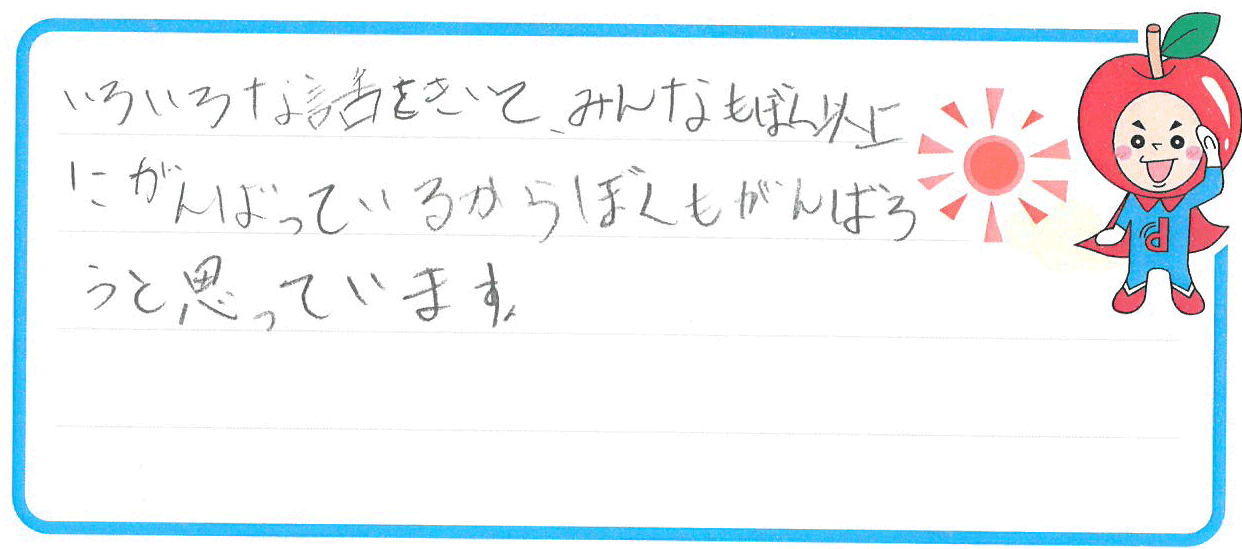 いろいろな話をきいて、みんなもぼく以上に
にがんばっているからぼくもがんばろ
うと思っています。